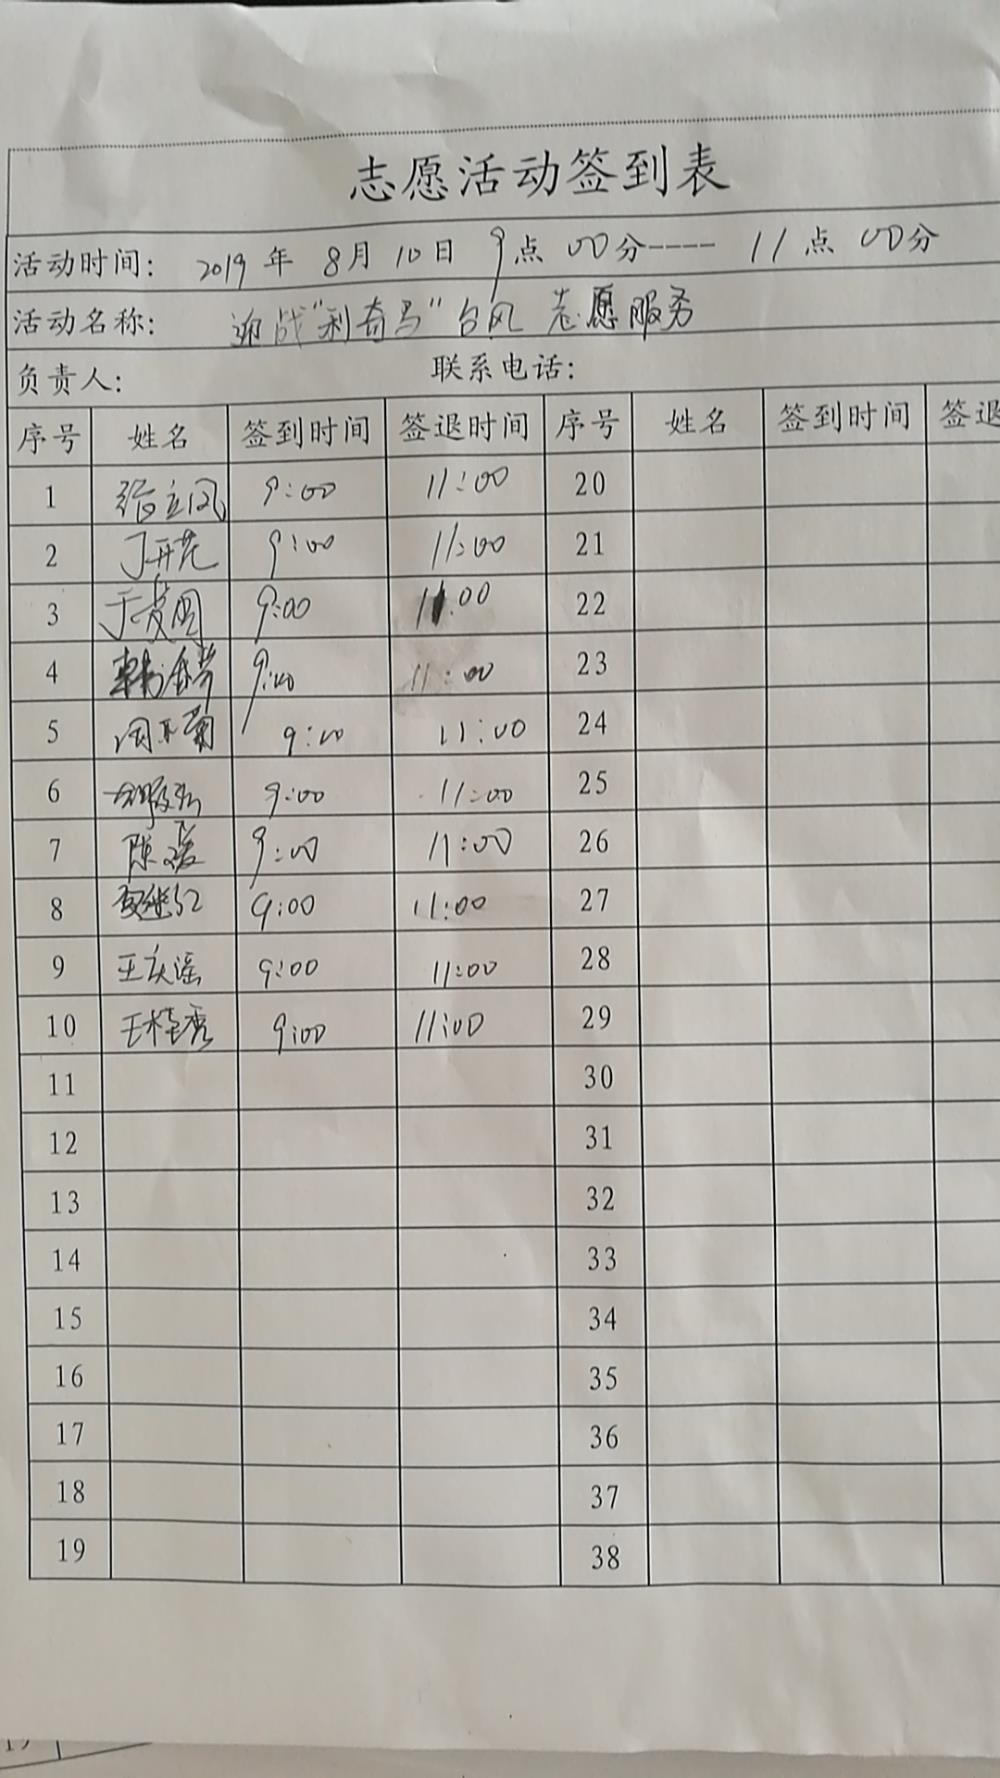 志愿活动签到表
活动时间: 2019 年 8月 10日 9点 00分---- 11点 00分
活动名称: 迎战"利奇马"台风 志愿服务
负责人: 联系电话:
序号 姓名 签到时间 签退时间 序号 姓名 签到时间 签退
1 9:00 11:00 20
2 丁开花 9:00 11:00 21
3 9:00 11:00 22
4 9:00 11:00 23
5 9:00 11:00 24
6 9:00 11:00 25
7 陈 9:00 11:00 26
8 9:00 11:00 27
9 王庆谣 9:00 11:00 28
10 王桂秀 9:00 11:00 29
11 30
12 31
13 32
14 33
15 34
16 35
17 36
18 37
19 38